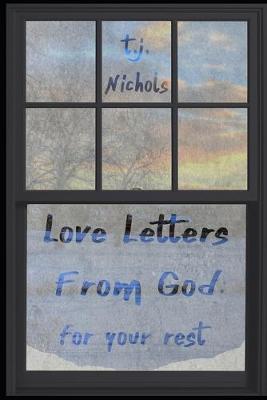 t.j.
Nichols
Love Letters
From God:
for your rest